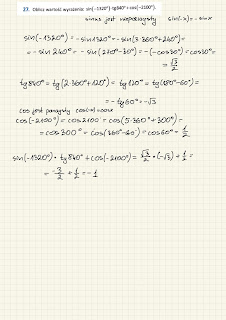 27. Oblicz wartość wyrażenia: sin(−1320°)·tg840°+cos(−2100°).
sinus jest nieparzysty sin(-x) = -sinx
sin(-1320°) = -sin1320° = -sin(3·360°+240°) =
= -sin240° = -sin(270°-30°) = -(-cos30°) = cos30° =
= √3/2
tg840° = tg(2·360°+120°) = tg120° = tg(180°-60°) =
= -tg60° = -√3
cos jest parzysty cos(-x) = cosx
cos(-2100°) = cos2100° = cos(5·360°+300°) =
= cos300° = cos(360°-60°) = cos60° = 1/2
sin(-1320°) · tg840° + cos(-2100°) = √3/2 · (-√3) + 1/2 =
= -3/2 + 1/2 = -1